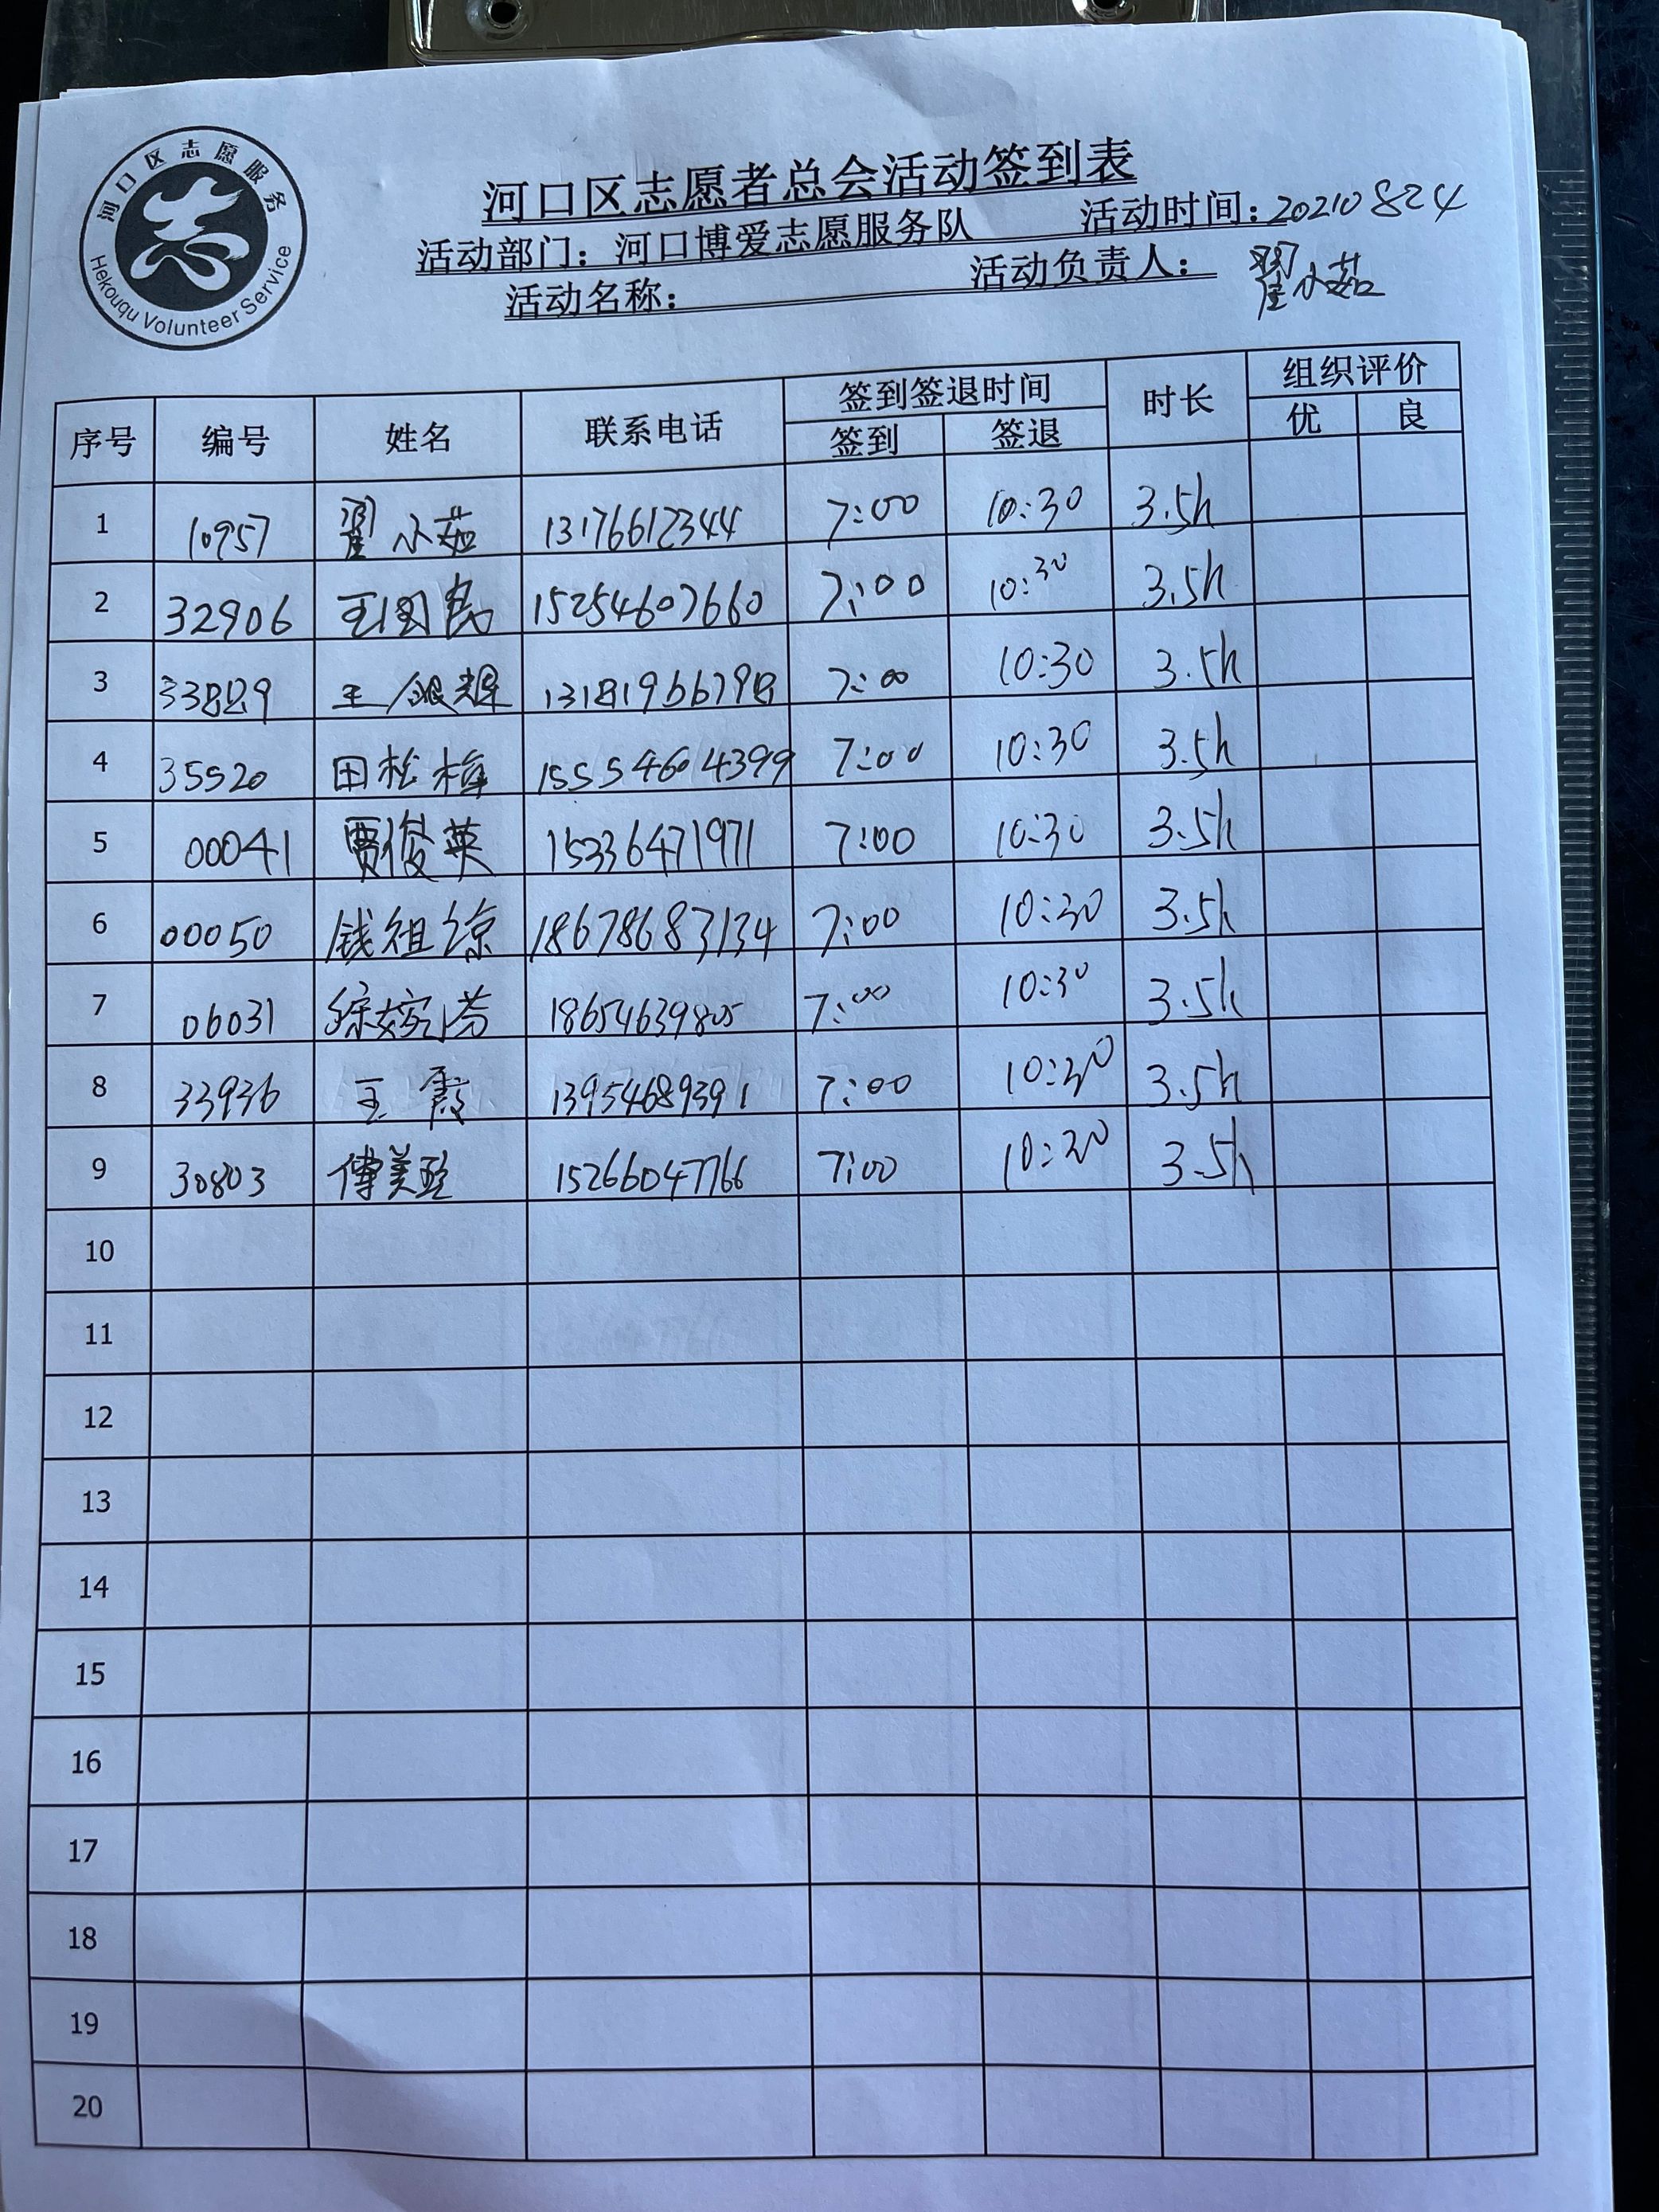 河口区志愿服务
Hekouqu Volunteer Service
河口区志愿者总会活动签到表
活动部门：河口博爱志愿服务队 活动时间：20210824
活动名称： 活动负责人： 翟小茹
序号 编号 姓名 联系电话 签到签退时间 时长 组织评价
签到 签退 优 良
1 10957 翟小茹 13176612344 7:00 10:30 3.5h
2 32906 王国民 15254607660 7:00 10:30 3.5h
3 33829 王银辉 13181966798 7:00 10:30 3.5h
4 35520 田松梅 15554604399 7:00 10:30 3.5h
5 00041 贾俊英 15336471971 7:00 10:30 3.5h
6 00050 钱祖琼 18678683134 7:00 10:30 3.5h
7 06031 18654639805 7:00 10:30 3.5h
8 33936 王霞 13954689391 7:00 10:30 3.5h
9 30803 傅美 15266047766 7:00 10:30 3.5h
10
11
12
13
14
15
16
17
18
19
20